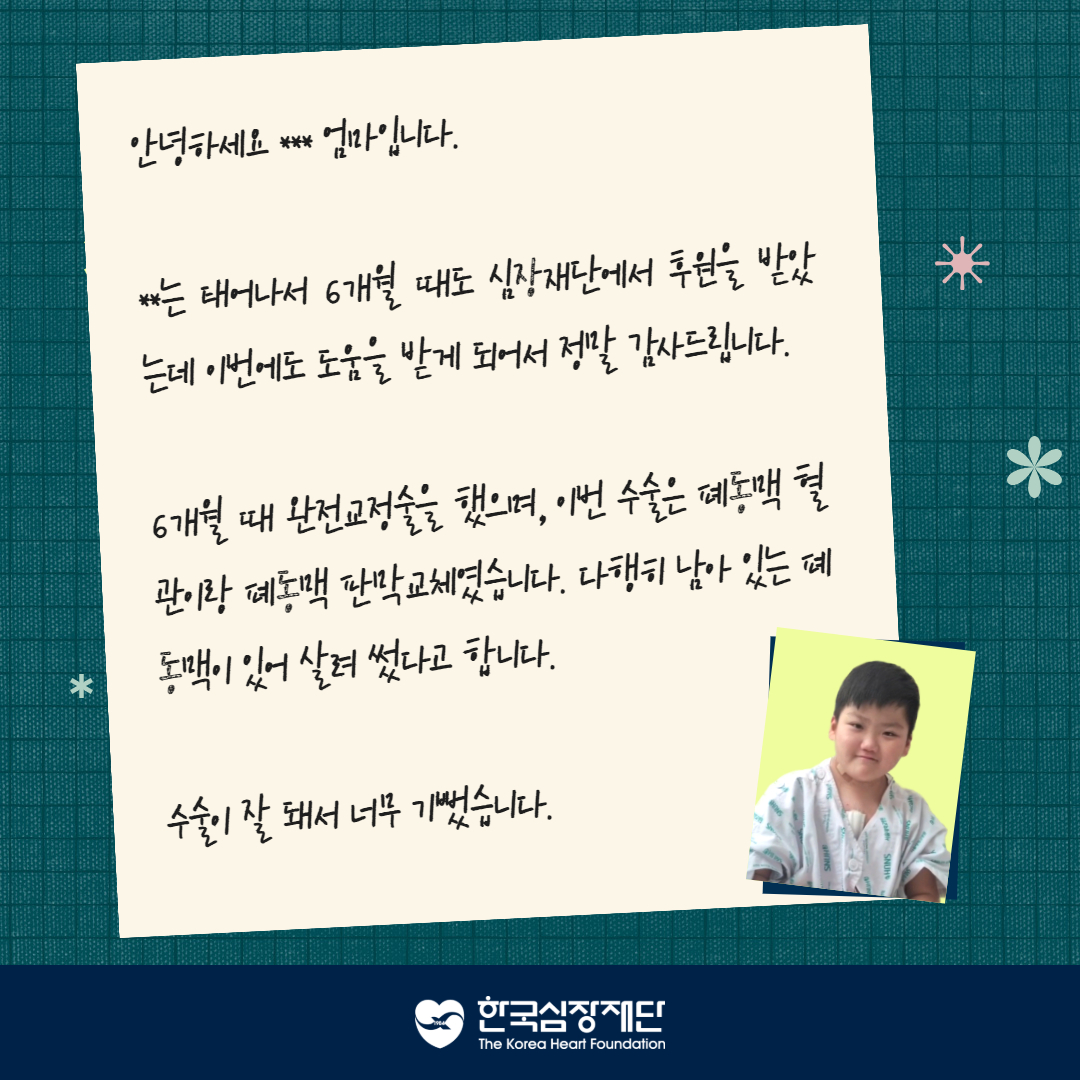 안녕하세요 *** 엄마입니다.
**는 태어나서 6개월 때도 심장재단에서 후원을 받았
는데 이번에도 도움을 받게 되어서 정말 감사드립니다.
6개월 때 완전교정술을 했으며, 이번 수술은 폐동맥 혈
관이랑 폐동맥 판막교체였습니다. 다행히 남아 있는 폐
동맥이 있어 살려 썼다고 합니다.
수술이 잘 돼서 너무 기뻤습니다.
1984
한국심장재단
The Korea Heart Foundation